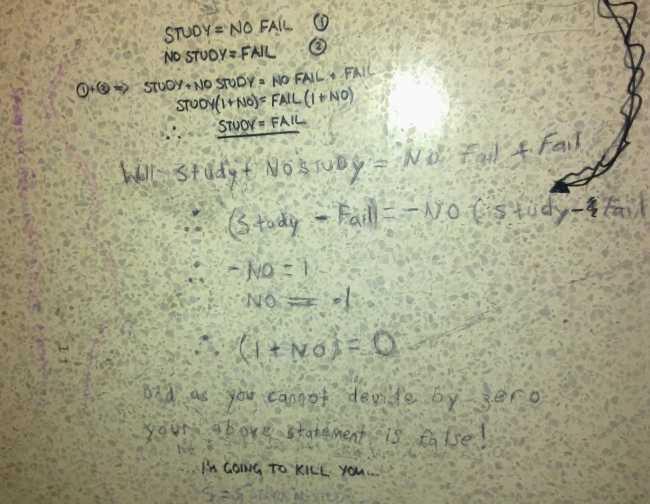 STUDY = NO FAIL ①
NO STUDY = FAIL ②
①+②=> STUDY + NO STUDY = NO FAIL + FAIL
STUDY(1+NO) = FAIL (1+NO)
∴ STUDY = FAIL
Well Study + NO STUDY = NO Fail + Fail
∴ (Study - Fail) = -NO (study - Fail
∴ -NO = 1
NO = -1
∴ (1 + NO) = 0
and as you cannot devide by zero
your above statement is false!
...I'M GOING TO KILL YOU...